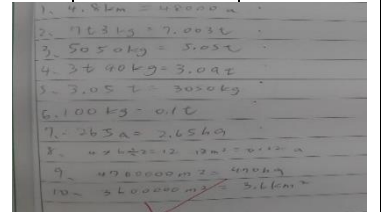 1. 4.8km = 48000 a
2. 7t3kg = 7.003t
3. 5050kg = 5.05t
4. 3t 90kg = 3.09t
5. 3.05 t = 3050kg
6. 100 kg = 0.1t
7. 265a = 2.65ha
8. = 12 = 0.12 a
9. 4760000m2 =
10. 3600000m2 = 3.6km2